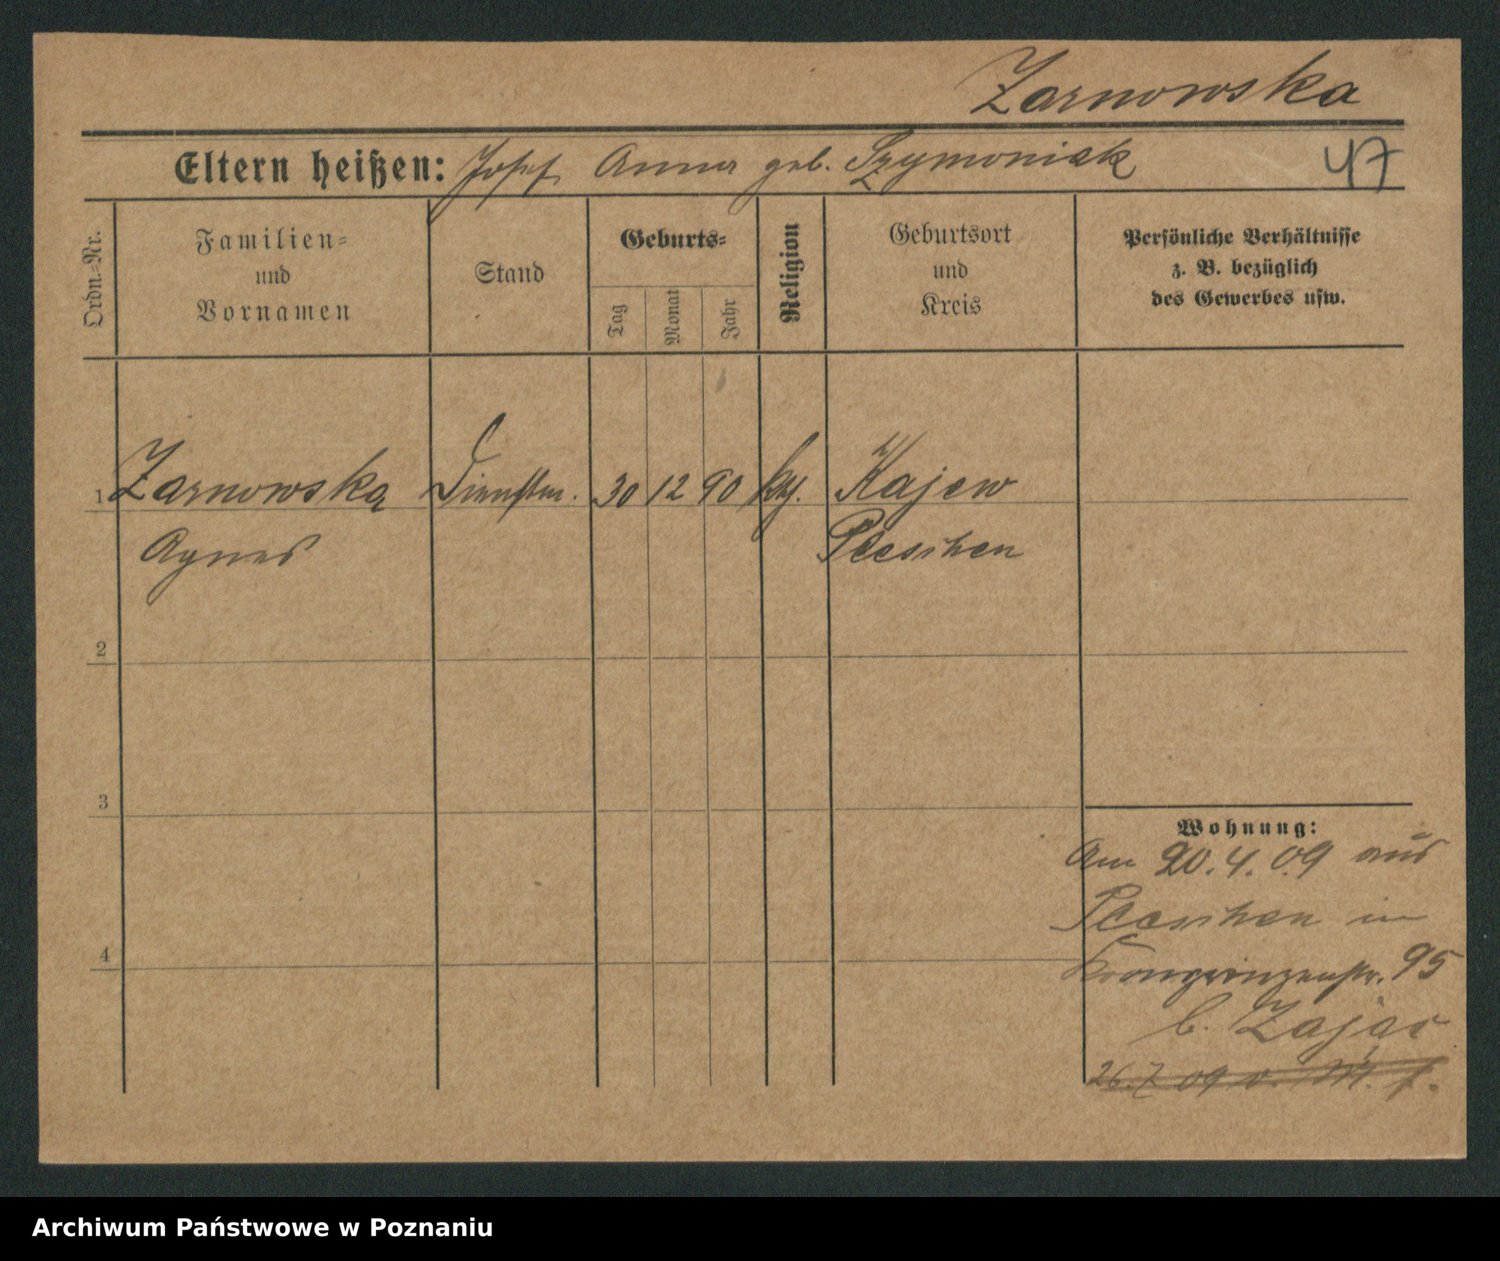 Zarnowska
Eltern heißen: Josef Anna geb. Szymoniak
47
Ordn.=Nr.
Familien=
und
Vornamen
Stand
Geburts=
Tag
Monat
Jahr
Religion
Geburtsort
und
Kreis
Persönliche Verhältnisse
z. B. bezüglich
des Gewerbes usw.
1 Zarnowska Dienstm. 30 12 90 kth. Kajew
Agnes Pleschen
2
3
4
Wohnung:
Am 20.4.09 aus
Pleschen in
Kronprinzenstr. 95
b. Zająć
26.7 09 v.
Archiwum Państwowe w Poznaniu